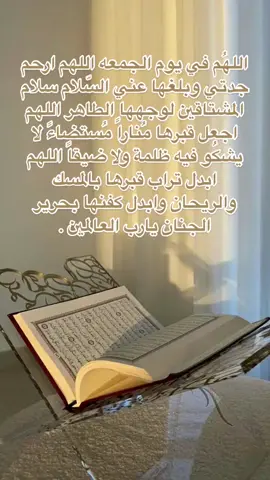 اللهُم في يوم الجمعه اللهم ارحم
جدتي وبلغها عني السّلام سلام
المشتاقين لوجهها الطاهر اللهم
اجعل قبرها مُناراً مُستضاءً لا
يشكو فيه ظلمة ولا ضيقاً اللهم
ابدل تراب قبرها بالمسك
والريحان وابدل كفنها بحرير
الجنان يارب العالمين .